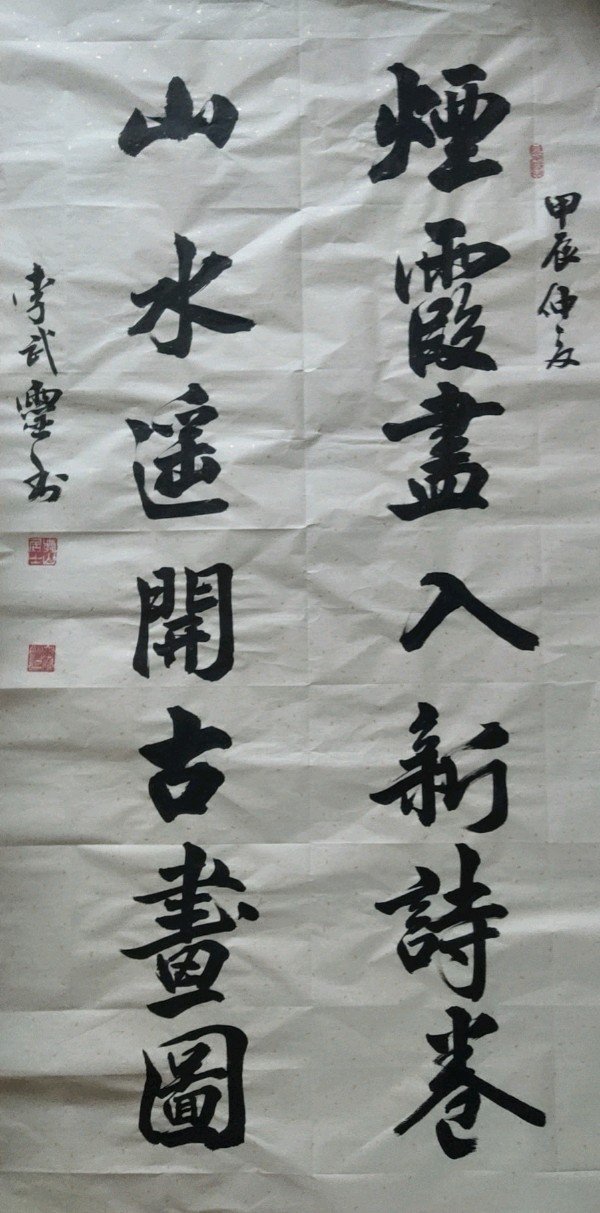 甲辰仲夏
煙霞盡入新詩卷
山水遥開古畫圖
李武靈书